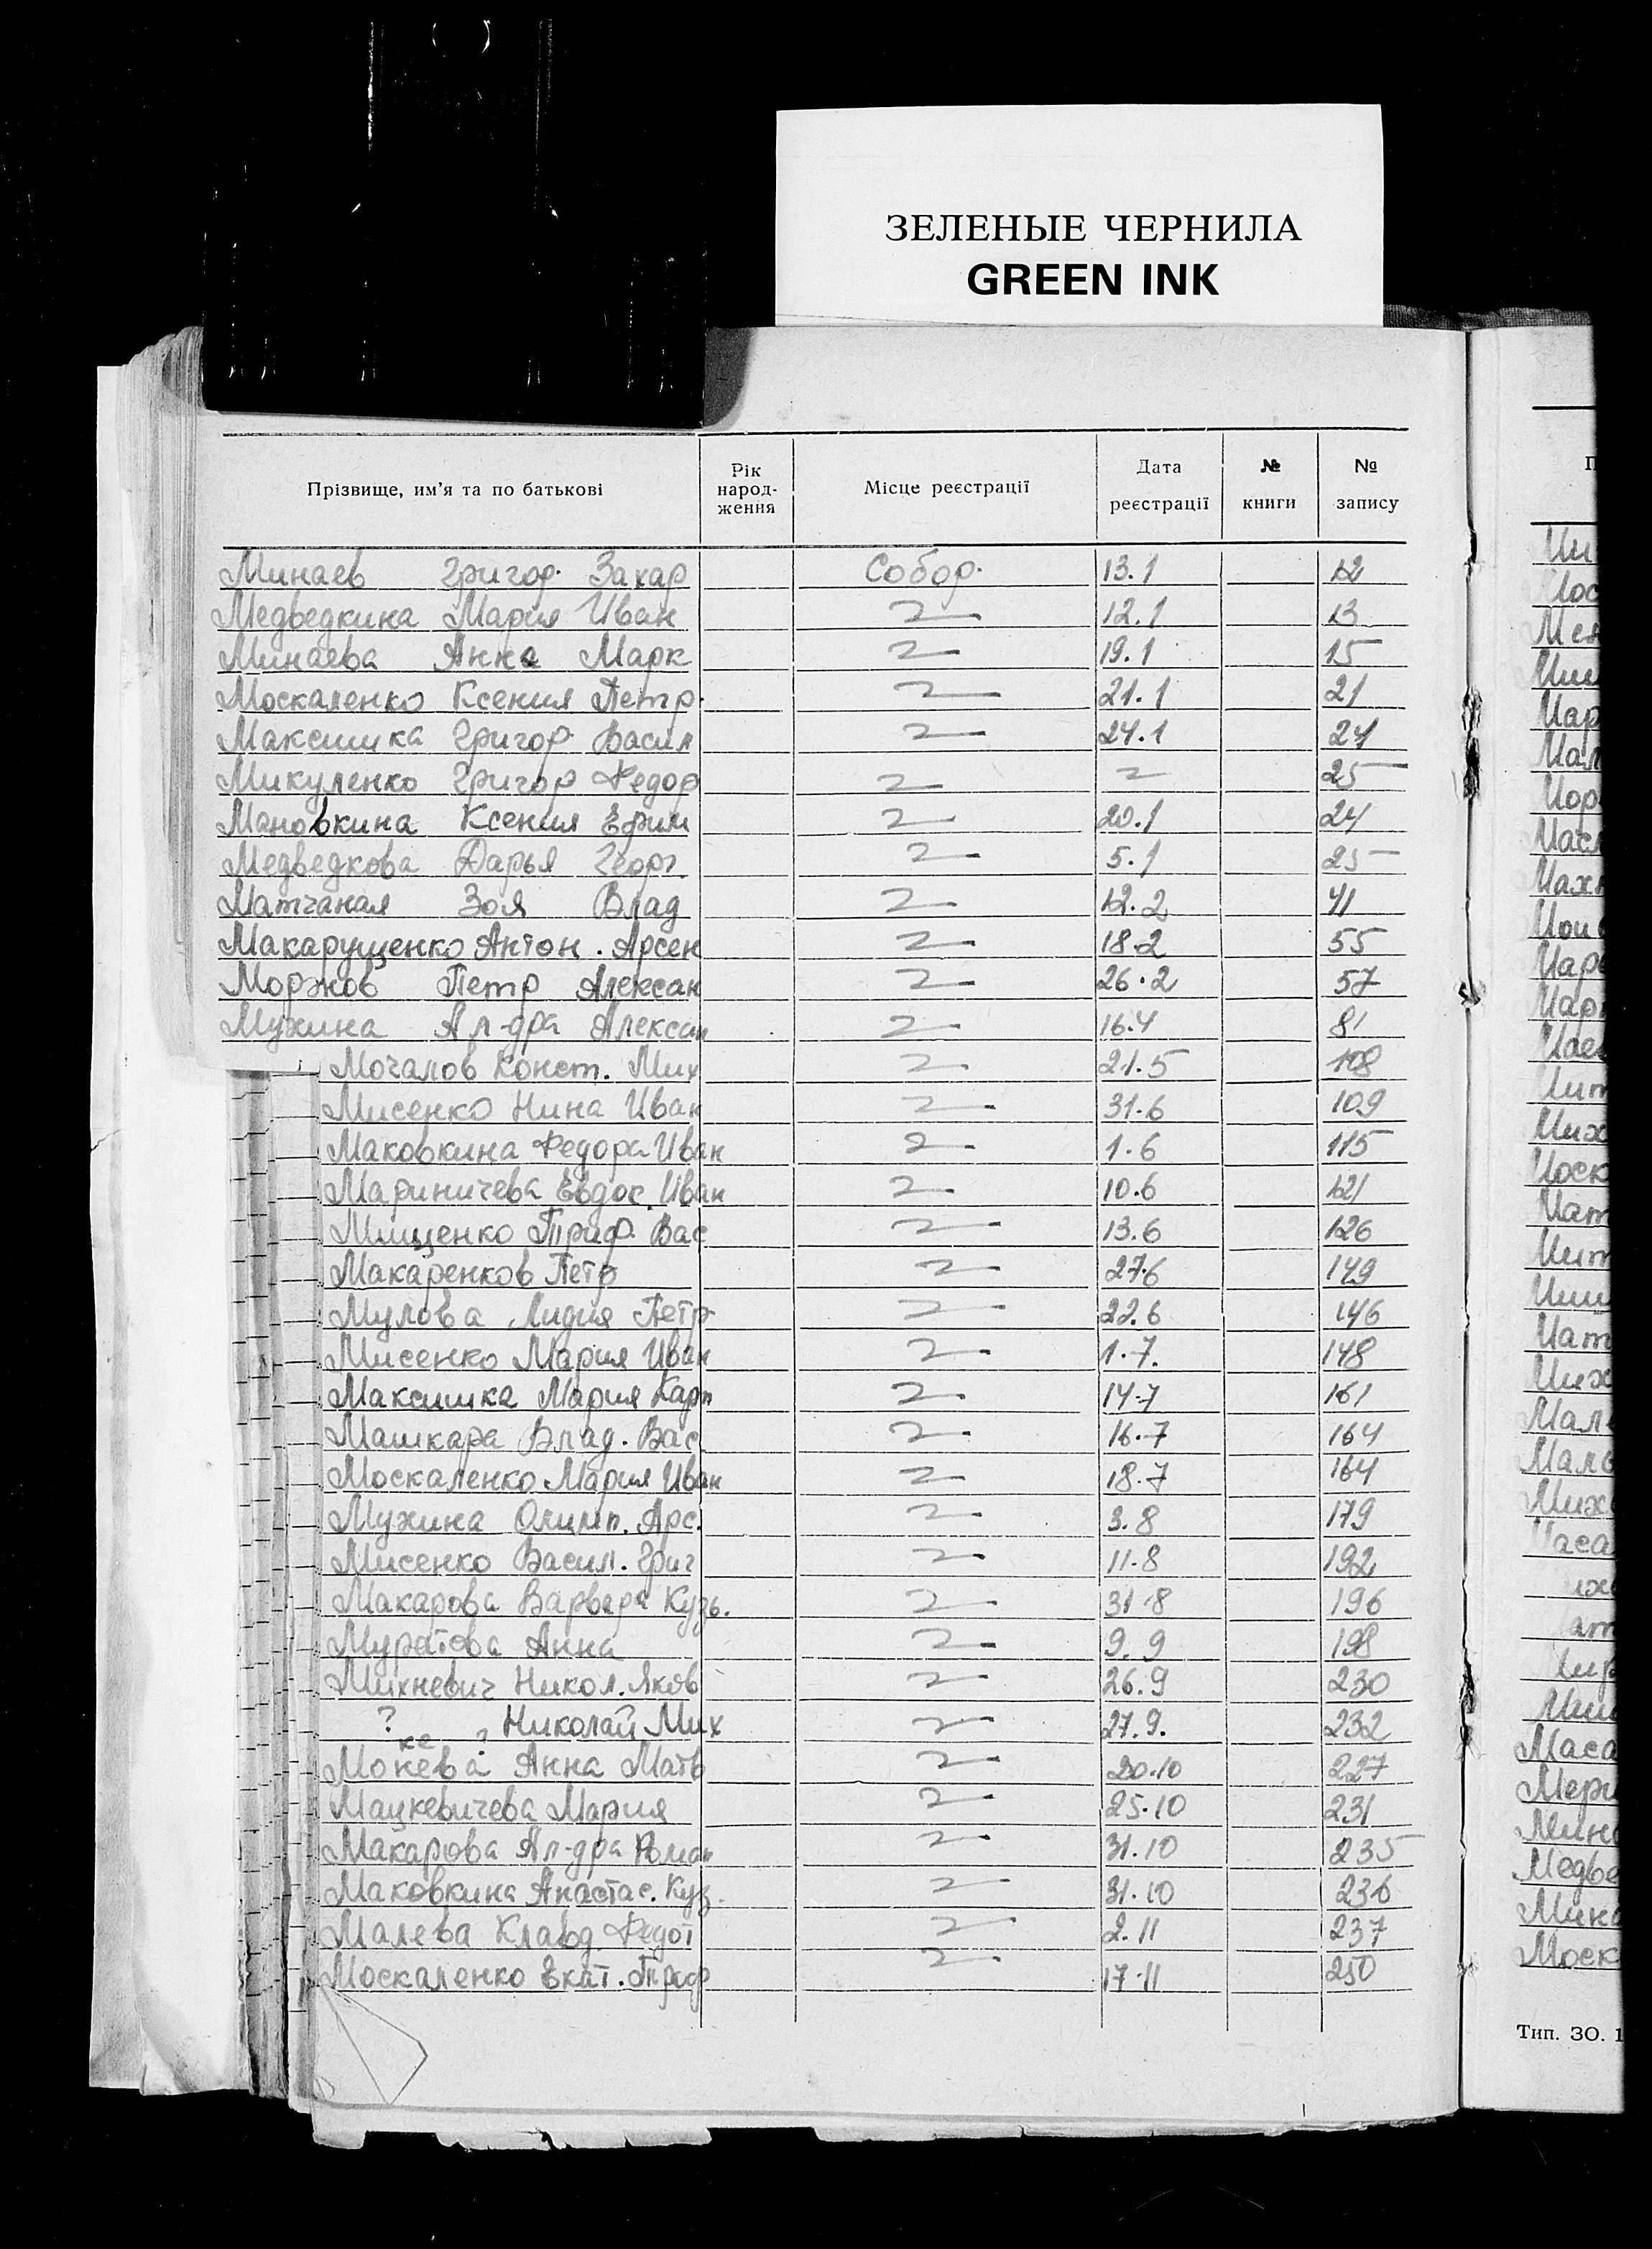 ЗЕЛЕНЫЕ ЧЕРНИЛА
GREEN INK
Прізвище, им'я та по батькові Рік народ-ження Місце реєстрації Дата реєстрації № книги № запису
Минаев Григор. Захар Собор. 13.1 12
Медведкина Мария Иван 12.1 13
Минаева Анна Марк 19.1 15
Москаленко Ксения Петр. 21.1 21
Максимка Григор. Васил 24.1 24
Микуленко Григор Федор 25
Мановкина Ксения Ефим 20.1 24
Медведкова Дарья Георг. 5.1 25
Матчаная Зоя Влад 12.2 41
Макарущенко Антон. Арсен 18.2 55
Моржов Петр Алексан 26.2 57
Мухина Ал-дра Алексан 16.4 81
Мочалов Конст. Мих 21.5 108
Мисенко Нина Иван 31.6 109
Маковкина Федора Иван 1.6 115
Мариничева Евдос. Иван 10.6 121
Мищенко Триф. Вас 13.6 126
Макаренков Петр 27.6 149
Мулова Лидия Петр 22.6 146
Мисенко Мария Иван 1.7. 148
Максимка Мария Карп 14.7 161
Машкара Влад. Вас. 16.7 164
Москаленко Мария Иван 18.7 164
Мухина Олимп. Арс. 3.8 179
Мисенко Васил. Григ 11.8 192
Макарова Варвара Кузь. 31.8 196
Муратова Анна 9.9 198
Михневич Никол. Яков 26.9 230
? Николай Мих 27.9. 232
ке ?
Мокева Анна Матв 20.10 227
Мацкевичева Мария 25.10 231
Макарова Ал-дра Роман 31.10 235
Маковкина Анастас. Куз. 31.10 236
Малева Клавд Федот 2.11 237
Москаленко Екат. Триф 17.11 250
Тип. ЗО. 1